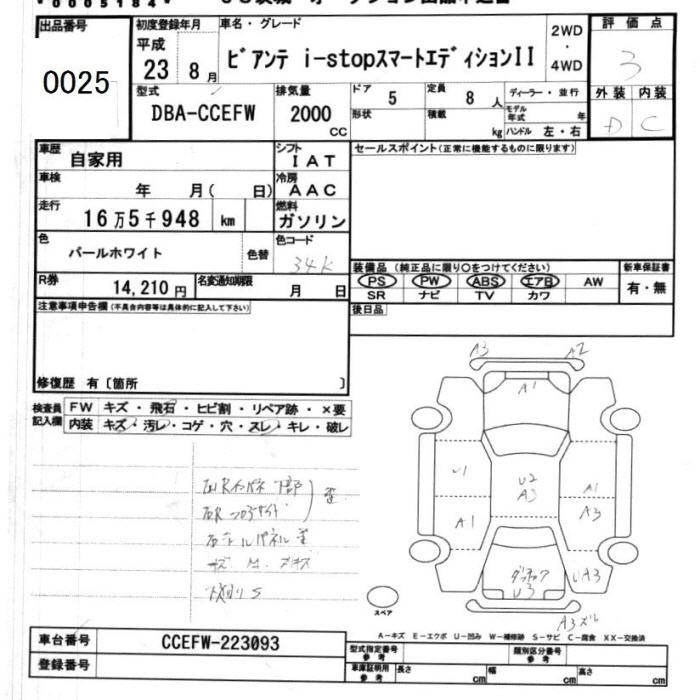 出品番号
0025
初度登録年月
平成
23 8月
車名・グレード
ビアンテ i-stopスマートエディションII
2WD
・
4WD
評価点
3
外装 内装
D C
型式
DBA-CCEFW
排気量
2000
CC
ドア
5
定員
8 人
形状
積載
kg
ディーラー・並行
モデル年式 年
ハンドル 左・右
車歴
自家用
シフト
IAT
車検
年 月( 日)
冷房
AAC
走行
16万5千948 km
燃料
ガソリン
色
パールホワイト
色替
色コード
34K
R券
14,210円
名変通知期限
月 日
セールスポイント(正常に機能するものに限ります)
装備品 (純正品に限り○をつけてください)
PS PW ABS エアB AW
SR ナビ TV カワ
新車保証書
有・無
後日品
注意事項申告欄(不具合内容等は具体的に記入して下さい)
修復歴 有〔箇所 〕
検査員
記入欄
FW キズ・飛石・ヒビ割・リペア跡・×要
内装 キズ・汚レ・コゲ・穴・スレ・キレ・破レ
A3 A2
A1
U1
U2
A3
A1
A3
A1
UA3
U3
A3
スペア
A-キズ E-エクボ U-凹み W-補修跡 S-サビ C-腐食 XX-交換済
車台番号
CCEFW-223093
登録番号
型式指定番号
参考
類別区分番号
参考
車庫証明用
参考
長さ cm
幅 cm
高さ cm